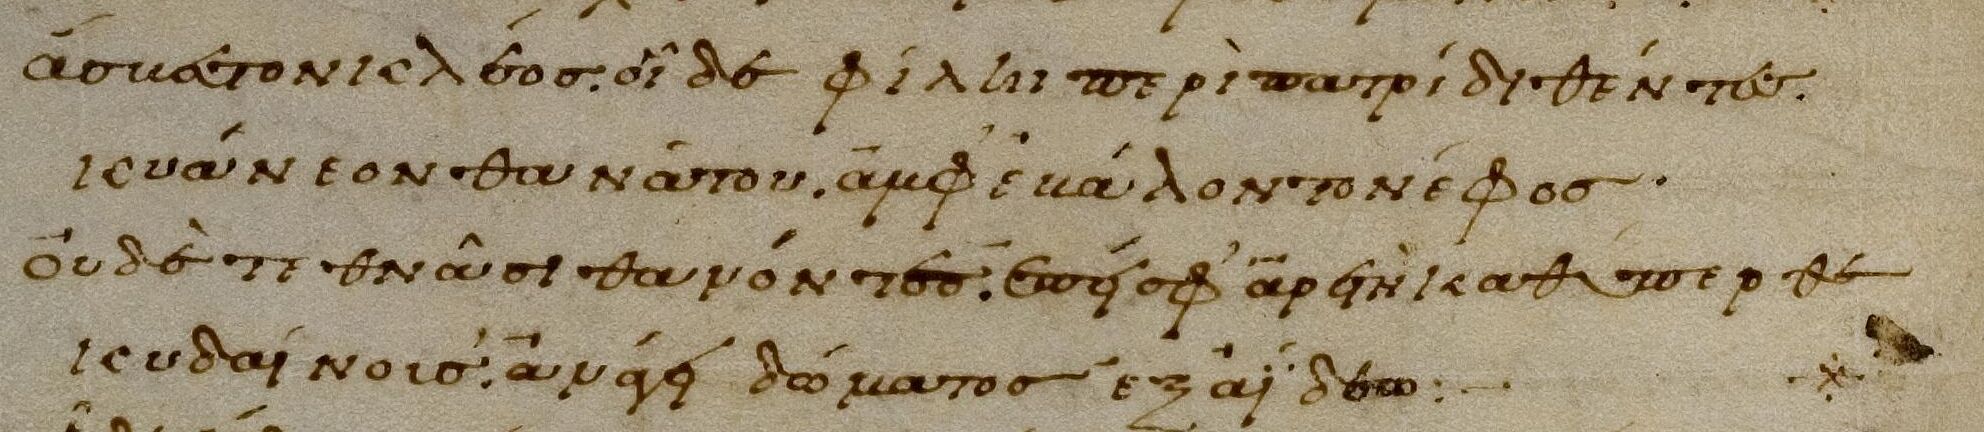 ἄσβεστον κλέος· οἵδε φίληι περὶ πατρίδι θέντες.
κυάνεον θανάτου. ἀμφ' ἐβάλοντο νέφος·
οὐδὲ τεθνᾶσι θανόντες· ἐπεί σφ' ἀρετὴ καθύπερθε
κυδαίνοισ'. ἀνάγει δώματος ἐξ ἀΐδεω:-